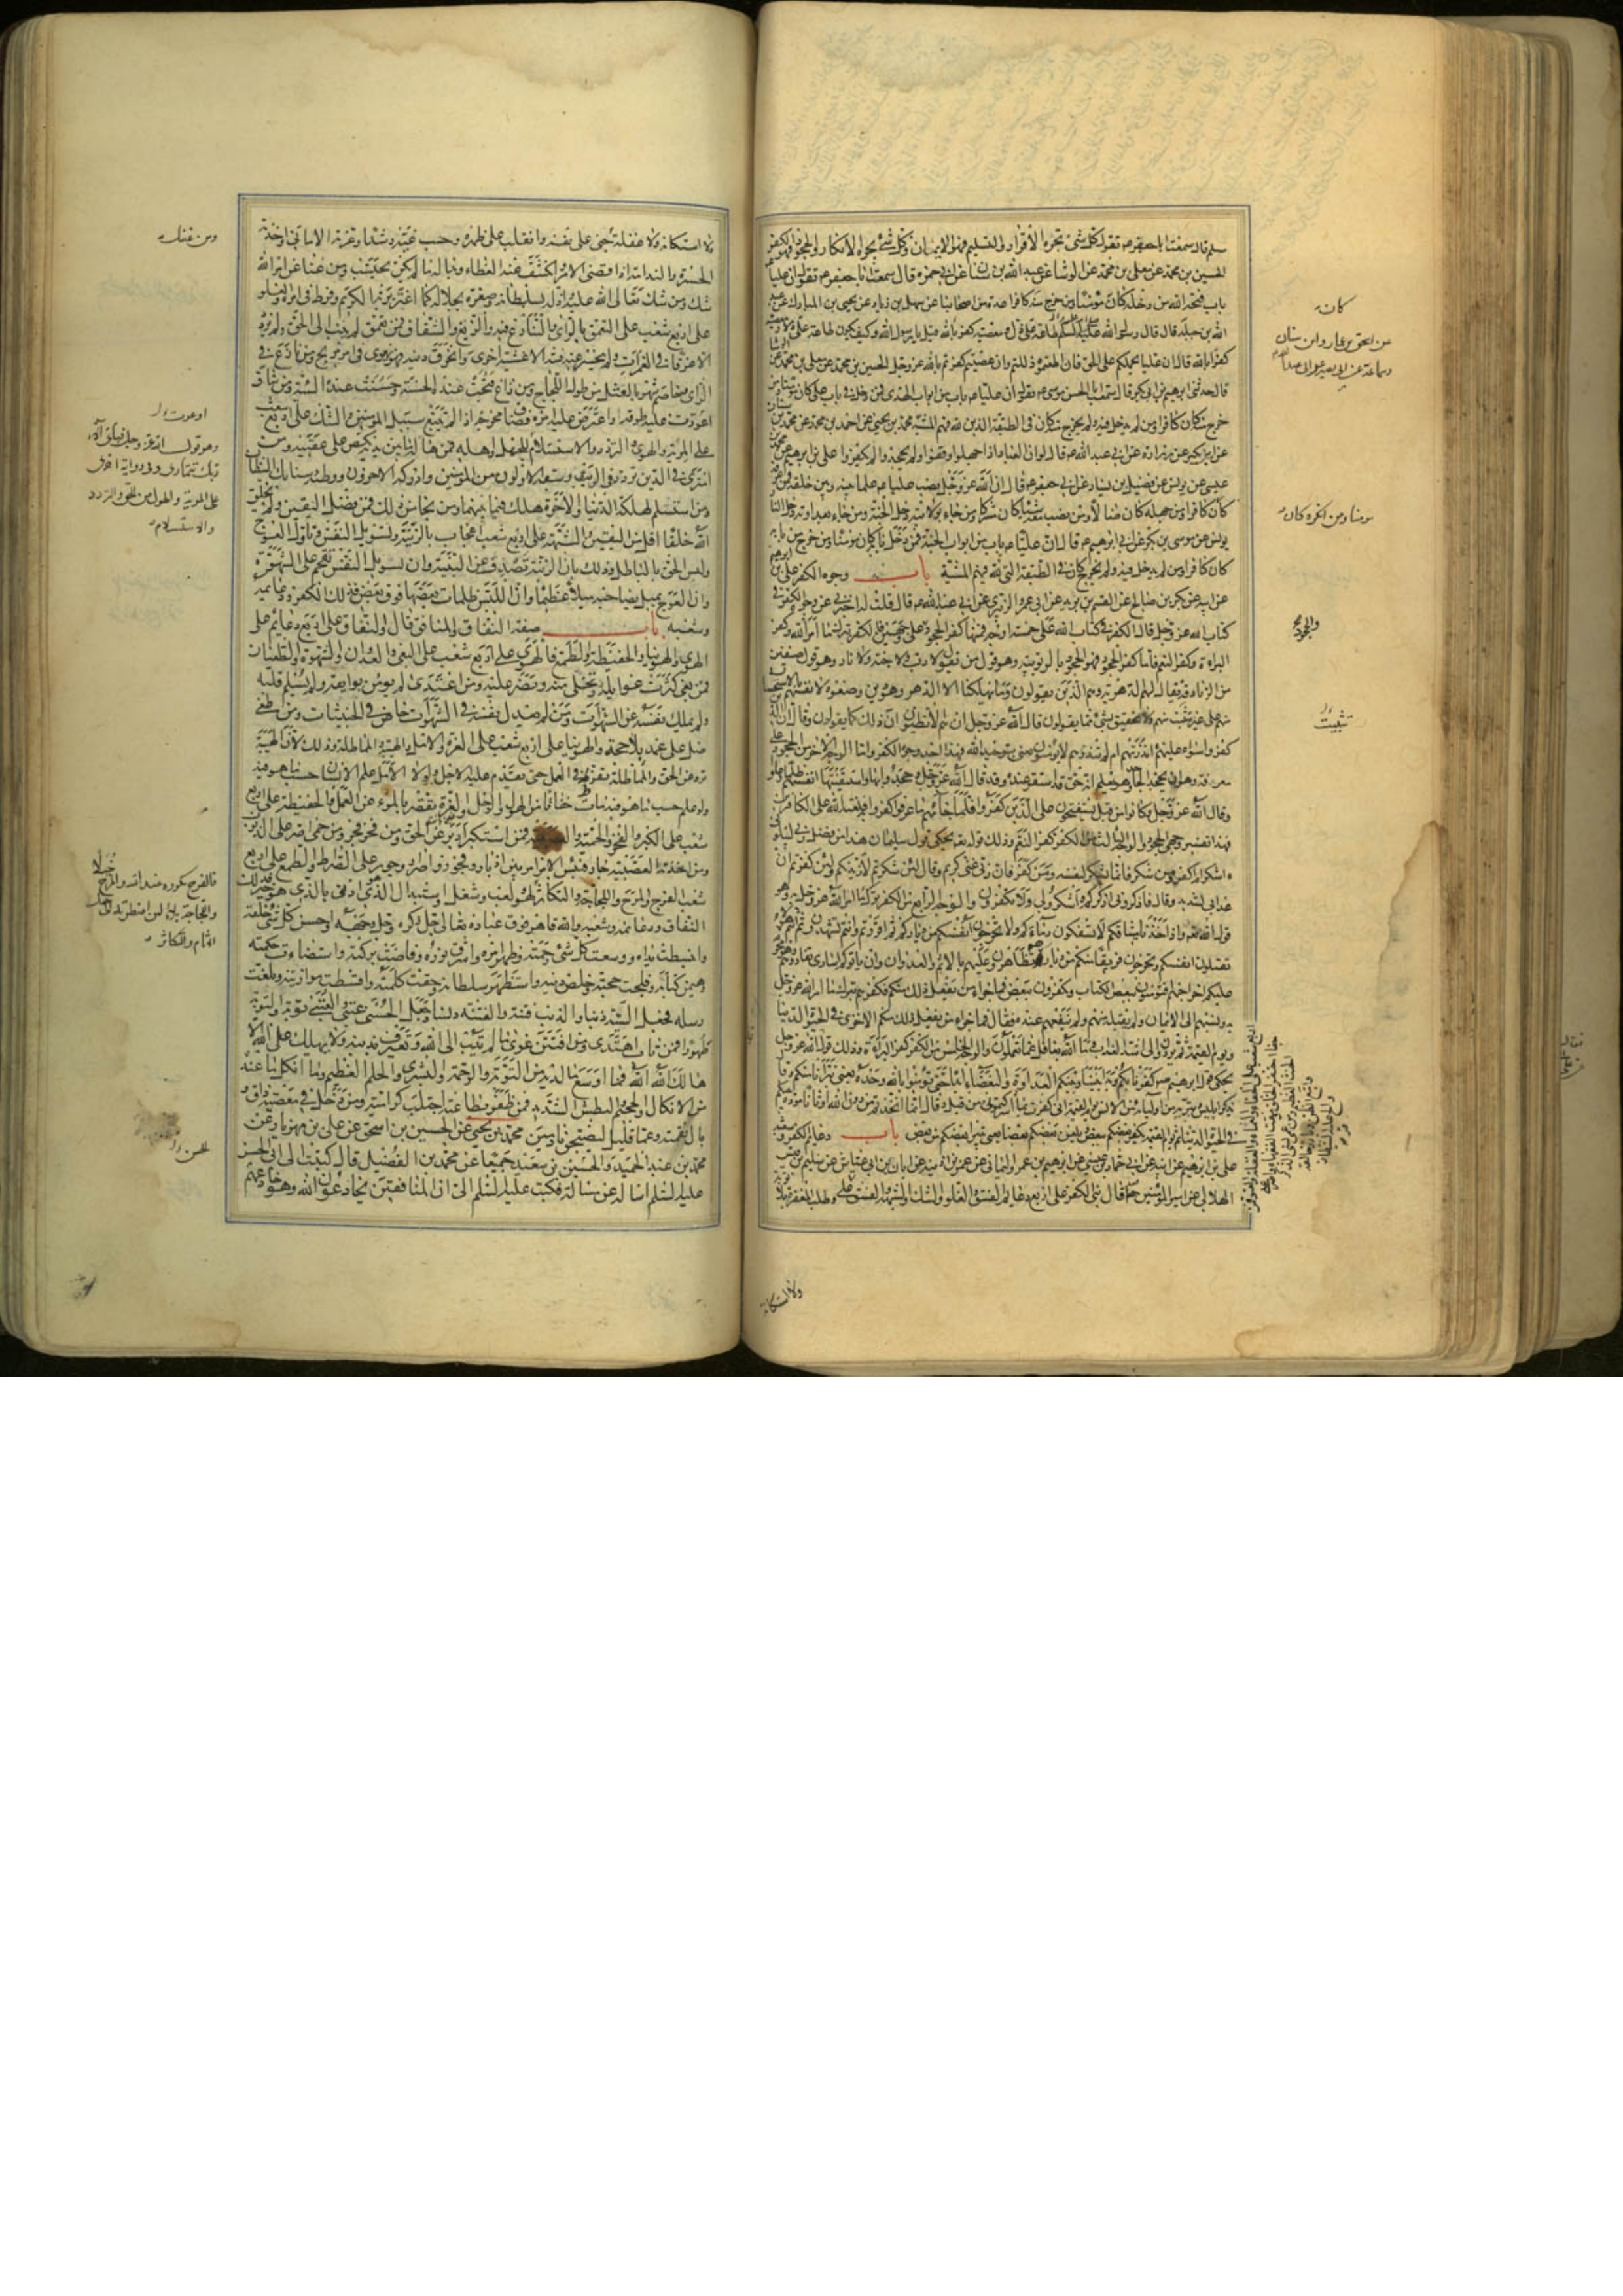 سلم قال سمعت ابا جعفر ع م يقول كل شئ يجره الاقرار والتسليم فهو الايمان وكل شئ يجره الانكار والجحود فهو الكفر
الحسين بن محمد عن معلى بن محمد عن الوشا عن عبد الله بن سنان عن ابى حمزه قال سمعت ابا جعفر ع م يقول ان عليا
باب فتحه الله من دخله كان مؤمنا ومن خرج منه كان كافرا عدة من اصحابنا عن سهل بن زياد عن يحيى بن المبارك عن عبد
الله بن جبله قال قال رسول الله طاعة على ذل ومعصيته كفر بالله قيل يا رسول الله وكيف يكون طاعة على
كفرا بالله قال ان عليا يحملكم على الحق فان اطعتموه ذللتم وان عصيتموه كفرتم بالله عز وجل الحسين بن محمد عن معلى بن محمد عن
قال حدثنى ابرهيم بن ابى بكر قال سمعت ابا الحسن موسى ع م يقول ان عليا ع م باب من ابواب الهدى فمن دخل فى باب على كان مؤمنا ومن
خرج منه كان كافرا ومن لم يدخل فيه ولم يخرج منه كان فى الطبقة الذين لله فيهم المشية محمد بن يحيى عن احمد بن محمد عن محمد بن
عن ابن بكير عن زرارة عن ابى عبد الله ع م قال لو ان العباد اذا جهلوا وقفوا ولم يجحدوا لم يكفروا على بن ابرهيم عن محمد
عيسى عن يونس عن فضيل بن يسار عن ابى جعفر ع م قال ان الله عز وجل نصب عليا ع م علما بينه وبين خلقه فمن
كان كافرا ومن جهله كان ضالا ومن نصب معه شيئا كان مشركا ومن جاء بولايته دخل الجنة ومن جاء بعداوته دخل النار
يونس عن موسى بن بكر عن ابى ابرهيم ع م قال ان عليا ع م باب من ابواب الجنة فمن دخل بابه كان مؤمنا ومن خرج من بابه
كان كافرا ومن لم يدخل فيه ولم يخرج منه كان فى الطبقة التى لله فيهم المشية باب وجوه الكفر على بن ابرهيم
عن ابيه عن بكر بن صالح عن القسم بن بريد عن ابى عمرو الزبيرى عن ابى عبد الله ع م قال قلت له اخبرنى عن وجوه الكفر فى
كتاب الله عز وجل قال الكفر فى كتاب الله على خمسة اوجه فمنها كفر الجحود على وجهين والكفر بترك ما امر الله وكفر
البراءة وكفر النعم فاما كفر الجحود فهو الجحود بالربوبية وهو قول من يقول لا رب ولا جنة ولا نار وهو قول صنفين
من الزنادقة يقال لهم الدهرية وهم الذين يقولون وما يهلكنا الا الدهر وهو دين وضعوه لانفسهم بالاستحسان
منهم على غير تثبت منهم ولا تحقيق لشئ مما يقولون قال الله عز وجل ان هم الا يظنون ان ذلك كما يقولون وقال ان الذين
كفروا سواء عليهم ءانذرتهم ام لم تنذرهم لا يؤمنون يعنى بتوحيد الله فهذا احد وجوه الكفر واما الوجه الاخر من الجحود على
معرفة وهو ان يجحد الجاحد وهو يعلم انه حق قد استقر عنده وقد قال الله عز وجل وجحدوا بها واستيقنتها انفسهم ظلما وعلوا
وقال الله عز وجل وكانوا من قبل يستفتحون على الذين كفروا فلما جاءهم ما عرفوا كفروا به فلعنة الله على الكافرين
فهذا تفسير وجهى الجحود والوجه الثالث من الكفر كفر النعم وذلك قوله تعالى يحكى قول سليمان هذا من فضل ربى ليبلونى
ءاشكر ام اكفر ومن شكر فانما يشكر لنفسه ومن كفر فان ربى غنى كريم وقال لئن شكرتم لازيدنكم ولئن كفرتم ان
عذابى لشديد وقال فاذكرونى اذكركم واشكروا لى ولا تكفرون والوجه الرابع من الكفر ترك ما امر الله عز وجل به وهو
قول الله عز وجل واذ اخذنا ميثاقكم لا تسفكون دماءكم ولا تخرجون انفسكم من دياركم ثم اقررتم وانتم تشهدون ثم انتم هؤلاء
تقتلون انفسكم وتخرجون فريقا منكم من ديارهم تظاهرون عليهم بالاثم والعدوان وان ياتوكم اسارى تفادوهم وهو محرم
عليكم اخراجهم افتؤمنون ببعض الكتاب وتكفرون ببعض فما جزاء من يفعل ذلك منكم فكفرهم بترك ما امر الله عز وجل
به ونسبهم الى الايمان ولم يقبله منهم ولم ينفعهم عنده فقال فما جزاء من يفعل ذلك منكم الا خزى فى الحيوة الدنيا
ويوم القيمة يردون الى اشد العذاب وما الله بغافل عما تعملون والوجه الخامس من الكفر كفر البراءة وذلك قول الله عز وجل
يحكى قول ابرهيم كفرنا بكم وبدا بيننا وبينكم العداوة والبغضاء ابدا حتى تؤمنوا بالله وحده يعنى تبرأنا منكم وقال
يذكر ابليس وتبريه من اوليائه من الانس يوم القيمة انى كفرت بما اشركتمونى من قبل وقال انما اتخذتم من دون الله اوثانا مودة بينكم
فى الحيوة الدنيا ثم يوم القيمة يكفر بعضكم ببعض ويلعن بعضكم بعضا يعنى يتبرا بعضكم من بعض باب دعايم الكفر وشعبه
على بن ابرهيم عن ابيه عن حماد بن عيسى عن ابرهيم بن عمر اليمانى عن عمر بن اذينه عن ابان بن ابى عياش عن سليم بن قيس
الهلالى عن امير المؤمنين قال بنى الكفر على اربع دعايم الفسق والغلو والشك والشبهة والفسق على
كانه
عن اسحق بن عمار وابن سنان
وسماعة عن ابى بصير عن ابى عبد الله
مؤمنا ومن انكره كان
والجحود
تثبيت
ولا استكانة
ولا استكانة ولا غفلة جنى على نفسه وانقلب على ظهره وحسب غيه رشدا وغرته الامانى واخذته
الحسرة والندامة اذا قضى الامر وانكشف عنه الغطاء وبدا له ما لم يكن يحتسب ومن عتا عن امر الله
شك ومن شك تعالى الله عليه فاذله بسلطانه وصغره بجلاله كما اغتر بربه الكريم وفرط فى امره والغلو
على اربع شعب على التعمق بالراى والتنازع فيه والزيغ والشقاق فمن تعمق لم ينب الى الحق ولم يزدد
الا غرقا فى الغمرات ولم تنحسر عنه فتنة الا غشيته اخرى وانخرق دينه فهو يهوى فى امر مريج ومن نازع فى
الراى وخاصم شهر بالعثل من طول اللجاج ومن زاغ قبحت عنده الحسنة وحسنت عنده السيئة ومن شاق
اعورت عليه طرقه واعترض عليه امره فضاق مخرجه اذا لم يتبع سبيل المؤمنين والشك على اربع شعب
على المرية والهوى والتردد والاستسلام للجهل واهله فمن هاله ما بين يديه نكص على عقبيه ومن
امترى فى الدين تردد فى الريب وسبقه الاولون من المؤمنين وادركه الاخرون ووطئته سنابك الشيطان
ومن استسلم لهلكة الدنيا والاخرة هلك فيما بينهما ومن نجا من ذلك فمن فضل اليقين ولم يخلق
الله خلقا اقل من اليقين والشبهة على اربع شعب اعجاب بالزينة وتسويل النفس وتاول العوج
ولبس الحق بالباطل وذلك بان الزينة تصدف عن البينة وان تسويل النفس تقحم على الشهوة
وان العوج يميل بصاحبه ميلا عظيما وان اللبس ظلمات بعضها فوق بعض فذلك الكفر ودعايمه
وشعبه باب صفة النفاق والمنافق قال والنفاق على اربع دعايم على
الهوى والهوينا والحفيظة والطمع فالهوى على اربع شعب على البغى والعدوان والشهوة والطغيان
فمن بغى كثرت غوايله وتخلى منه ونصر عليه ومن اعتدى لم يؤمن بوايقه ولم يسلم قلبه
ولم يملك نفسه عن الشهوات ومن لم يعدل نفسه فى الشهوات خاض فى الخبيثات ومن طغى
ضل على عمد بلا حجة والهوينا على اربع شعب على الغرة والامل والهيبة والمماطلة وذلك لان الهيبة
ترد عن الحق والمماطلة تفرط فى العمل حتى يقدم عليه الاجل ولولا الامل علم الانسان حسب ما هو فيه
ولو علم حسب ما هو فيه مات خفاتا من الهول والوجل والغرة تقصر بالمرء عن العمل والحفيظة على اربع
شعب على الكبر والفخر والحمية فمن استكبر ادبر عن الحق ومن فخر فجر ومن حمى اصر على الذنوب
ومن اخذته العصبية جار فبئس الامر بين ادبار وفجور واصرار وجور على الصراط والطمع على اربع
شعب الفرح والمرح واللجاجة والتكاثر لهو ولعب وشغل واستبدال الذى هو ادنى بالذى هو خير فذلك
النفاق ودعايمه وشعبه والله قاهر فوق عباده تعالى ذكره وجل وجهه واحسن كل شئ خلقه
وانبسطت يداه ووسعت كل شئ رحمته وظهر امره واشرق نوره وفاضت بركته واستضاءت حكمته
وهيمن كتابه وفلجت حجته وخلص دينه واستظهر سلطانه وحقت كلمته واقسطت موازينه وبلغت
رسله فجعل السيئة ذنبا والذنب فتنة والفتنة دنسا وجعل الحسنى عتبى والعتبى توبة والتوبة
طهورا فمن تاب اهتدى ومن افتتن غوى ما لم يتب الى الله ويعترف بذنبه ولا يهلك على الله الا
هالك الله الله فما اوسع ما لديه من التوبة والرحمة والبشرى والحلم العظيم وما انكل ما عنده
من الانكال والجحيم والبطش الشديد فمن ظفر بطاعته اجتلب كرامته ومن دخل فى معصيته ذاق
بال نقمته وعما قليل ليصبحن نادمين محمد بن يحيى عن الحسين بن اسحق عن على بن مهزيار عن
محمد بن عبد الحميد والحسين بن سعيد جميعا عن محمد بن الفضيل قال كتبت الى ابى الحسن
عليه السلم اساله عن مسالة فكتب عليه السلم الى ان المنافقين يخادعون الله وهو خادعهم
اوعرت
وهو قول الله عز وجل فباى آلاء
ربك تتمارى وفى رواية اخرى
على المرية والهول من الحق والتردد
والاستسلام
فالفرح مكروه عند الله والمرح خيلاء